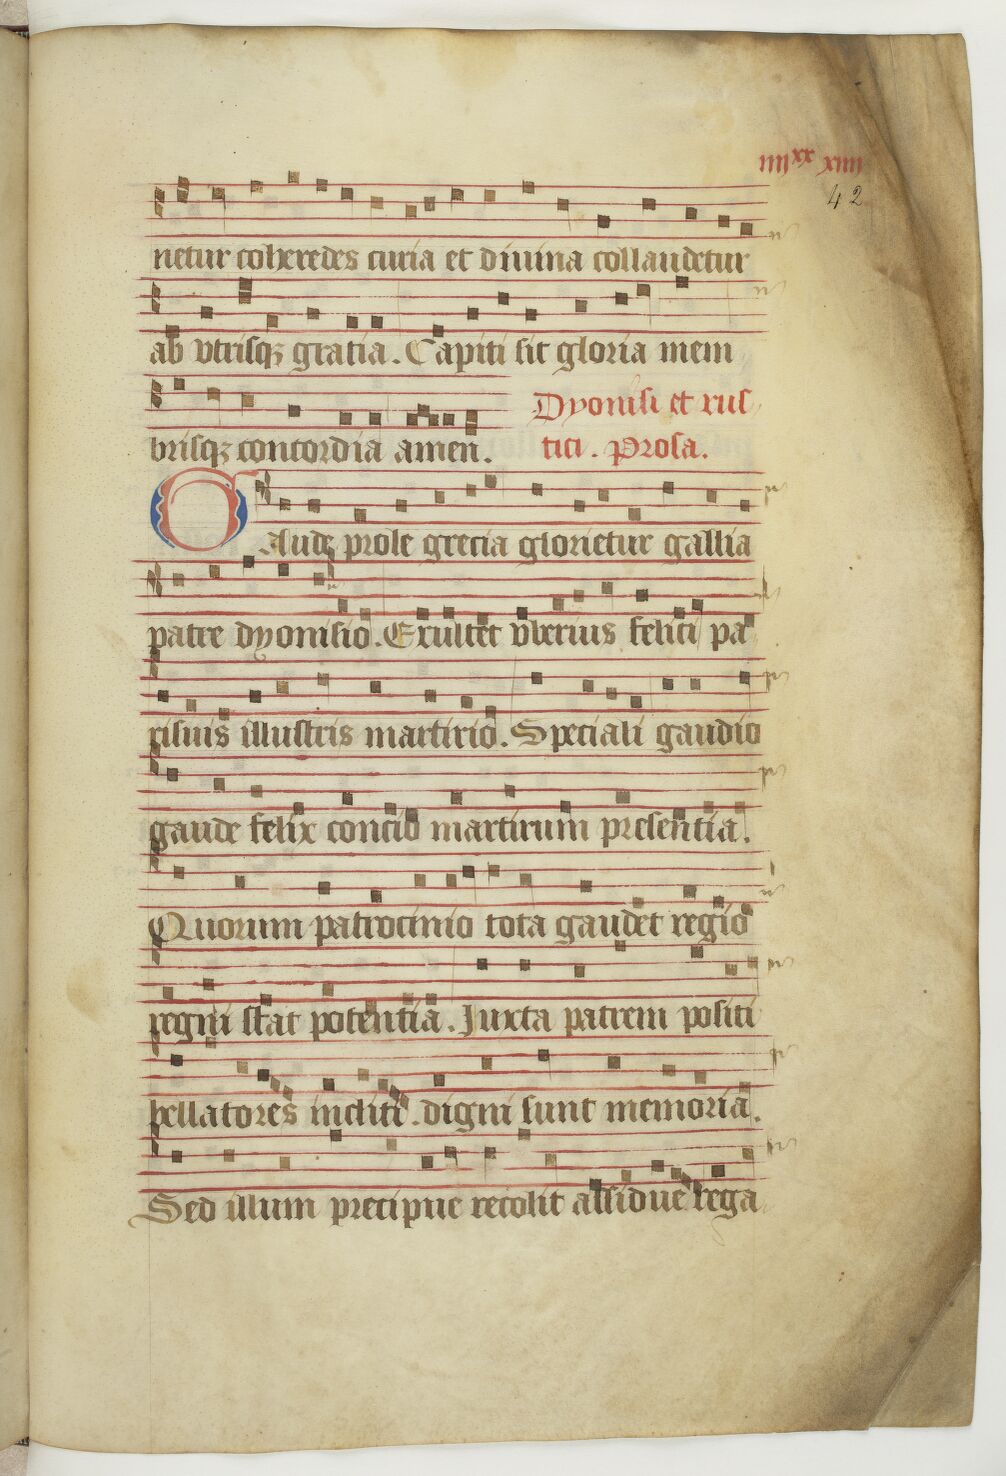 iiii xx xiiii
42
netur coheredes curia et diuina collaudetur
ab vtrisqꝫ gratia. Capiti sit gloria mem
brisqꝫ concordia amen. Dyonisi et rus
tici. Prosa.
Gaude prole grecia glorietur gallia
patre dyonisio. Exultet vberius felici pa
risius illustris martirio. Speciali gaudio
gaude felix concio martirum presentia.
Quorum patrocinio tota gaudet regio
regni stat potentia. Juxta patrem positi
bellatores incliti. digni sunt memoria.
Sed illum precipue recolit assidue rega